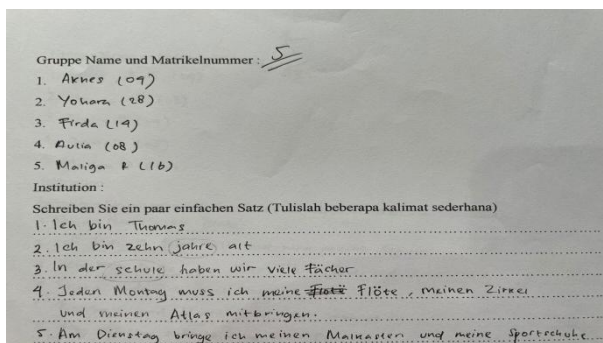 Gruppe Name und Matrikelnummer : 5
1. Aknes (09)
2. Yohara (28)
3. Firda (19)
4. Aulia (08)
5. Maliga R (16)
Institution :
Schreiben Sie ein paar einfachen Satz (Tulislah beberapa kalimat sederhana)
1. Ich bin Thomas
2. Ich bin zehn jahre alt
3. In der schule haben wir viele Fächer
4. Jeden Montag muss ich meine Flöte, meinen Zirkel
und meinen Atlas mitbringen.
5. Am Dienstag bringe ich meinen Malkasten und meine Sportschuhe